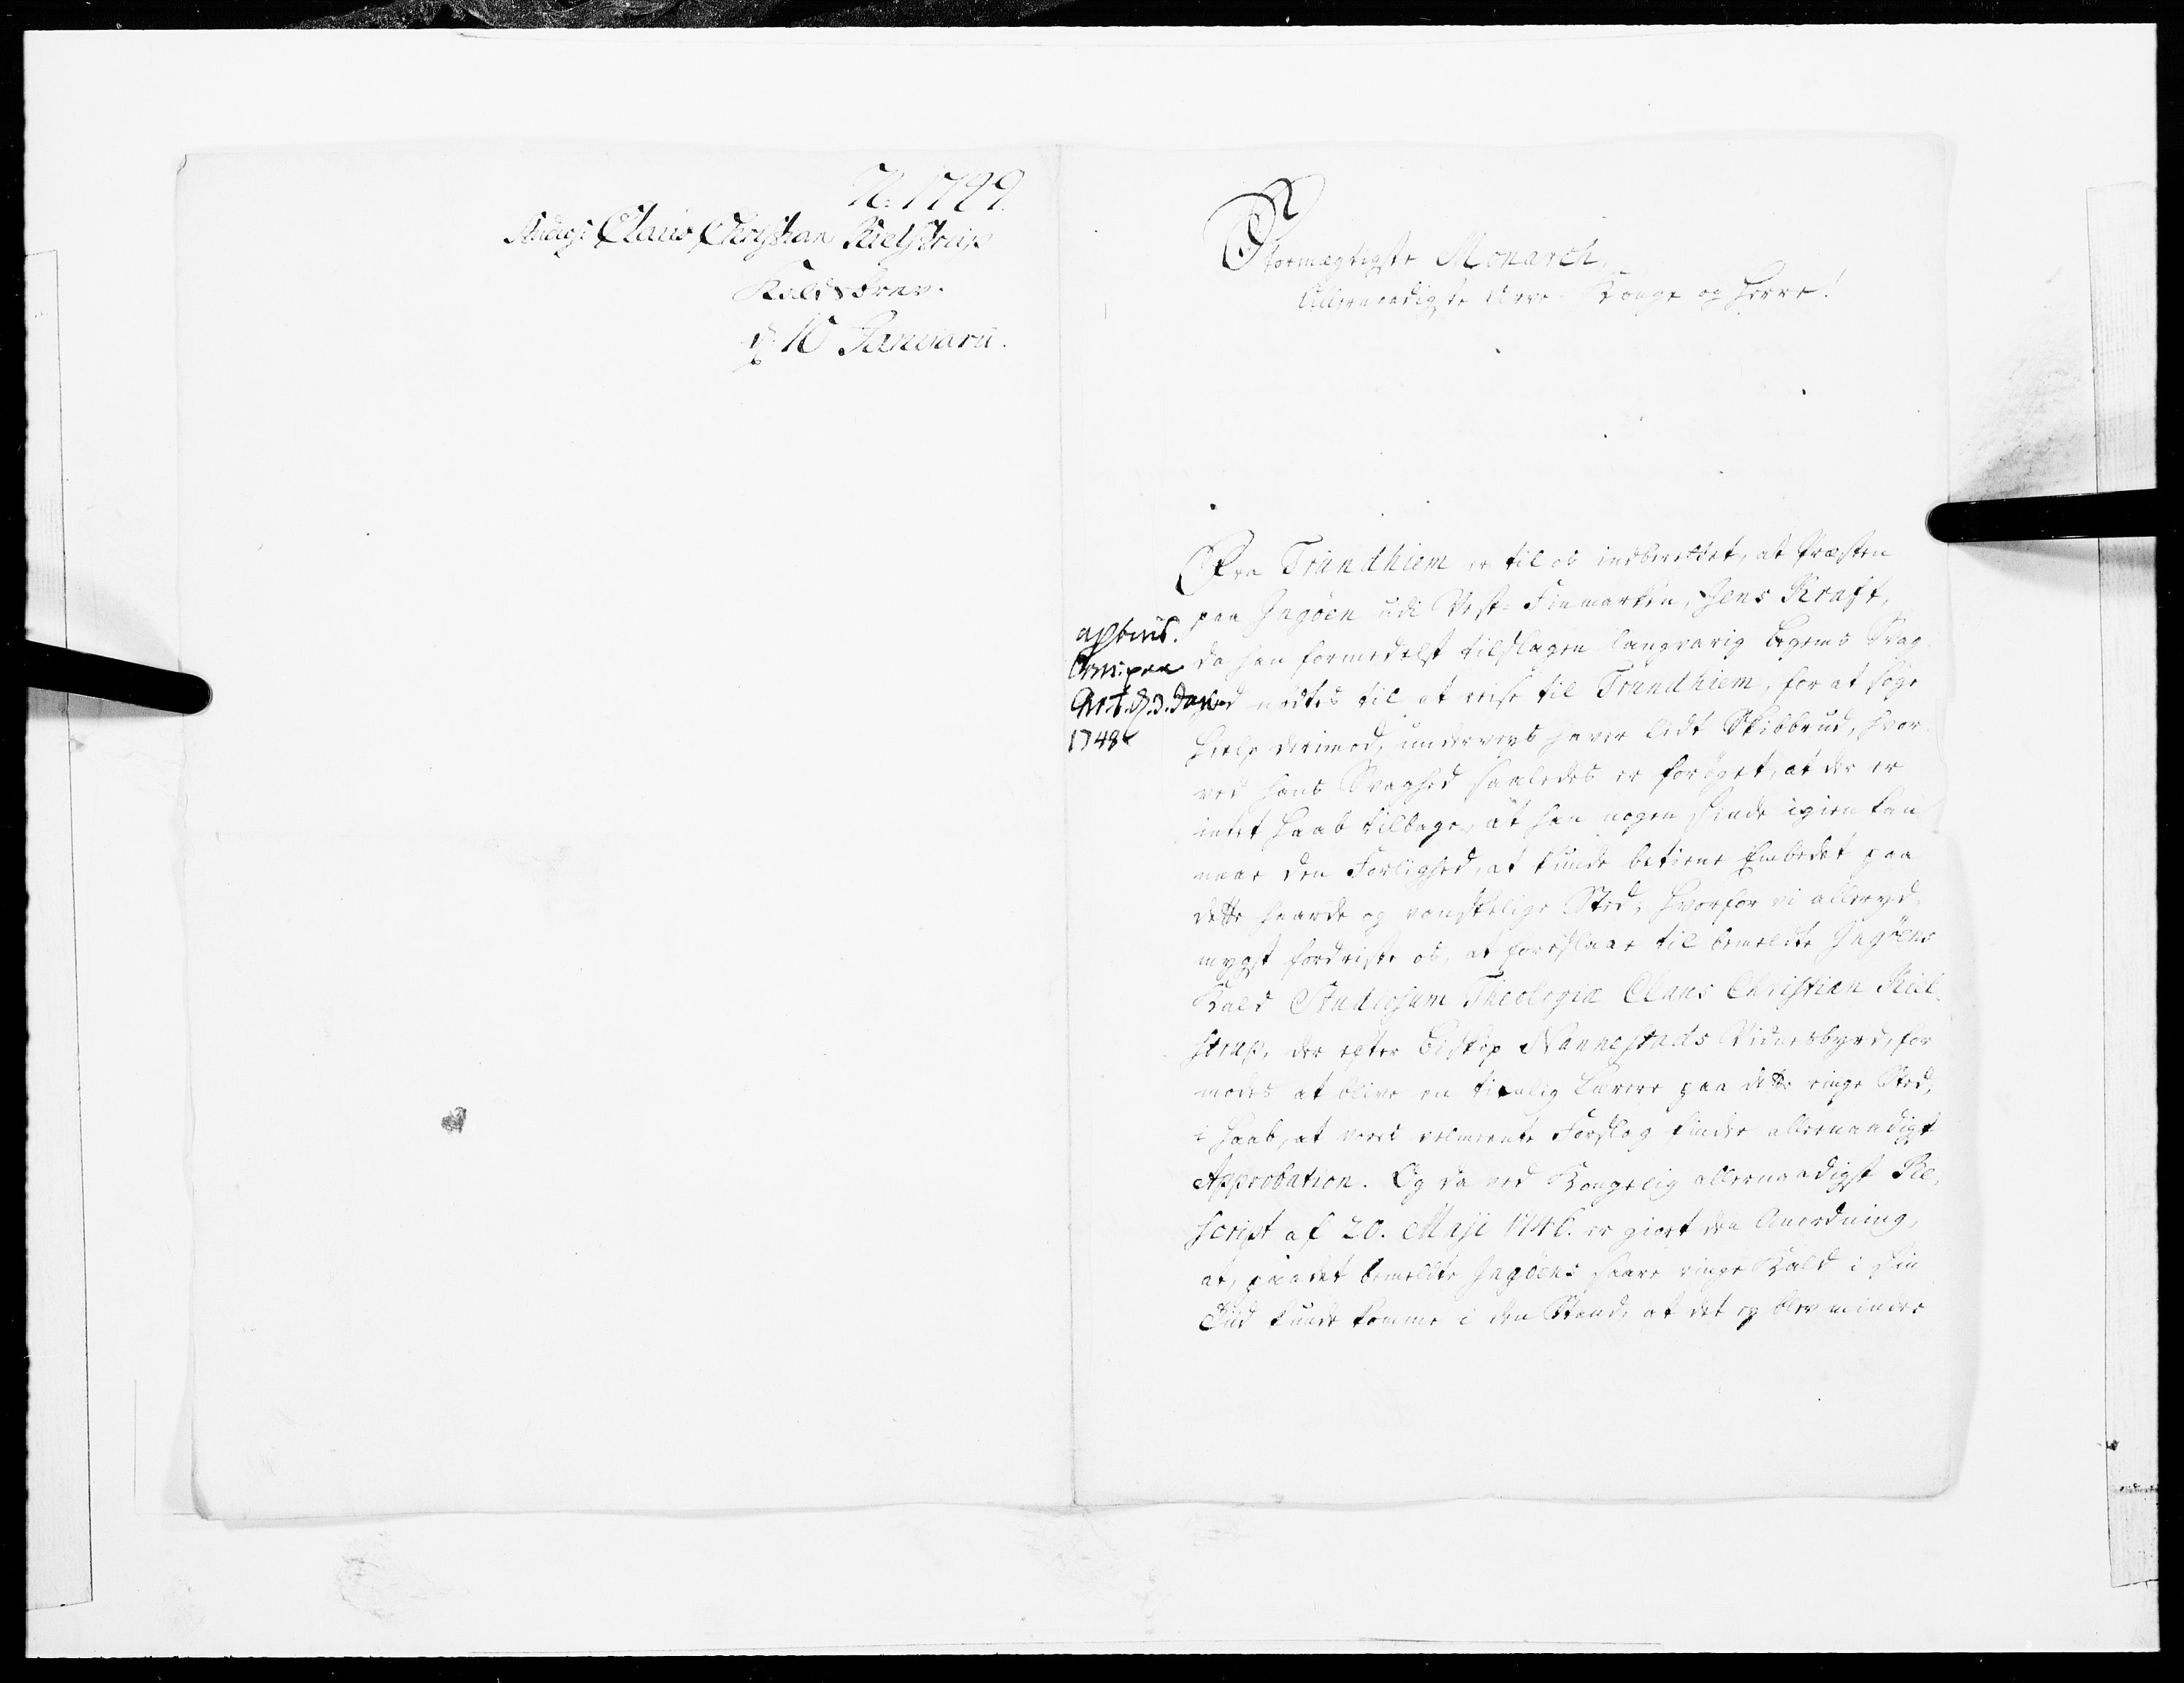 N: 1729.
Studios: Claus Christian Kielstrup
Kaldsbrev.
d: 10 Januarii.
Stormægtigste Monarch,
Allernaadigste Arve-Konge og Herre!
Fra Trundhiem er til os indberettet, at Præsten
paa Ingøen udi Vest-Finmarken, Jens Kraft,
da han formedelst tilslagen langvarig Legems Svag-
hed nødtes til at reise til Trundhiem, for at søge
Hielp derimod, underveys haver lidt Skibbrud, hvor-
ved hans Svaghed saaledes er forøget, at der er
intet Haab tilbage, at han nogen sinde igien kan
naae den Førlighed, at kunde betiene Embedet paa
dette haarde og vanskelige Sted, hvorfor vi allerund-
mygst fordriste os, at foreslaae til bemeldte Ingøens
Kald Studiosum Theologiæ Claus Christian Kiel-
strup, der efter Biskop Nannestads Vidnesbyrd, for-
modes at blive en tienlig Lærere paa dette ringe Sted,
i Haab, at vores velmeente Forslag finder allernaadigst
Approbation. Og da ved Kongelig allernaadigst Re-
script af 20. Maji 1746. er giort den Anordning,
at, paa det bemeldte Ingøens saare ringe Kald i sin
Tiid kunde komme i den Stand, at det ey blev mindre
Chr.b. d. 3. Jan.
1748